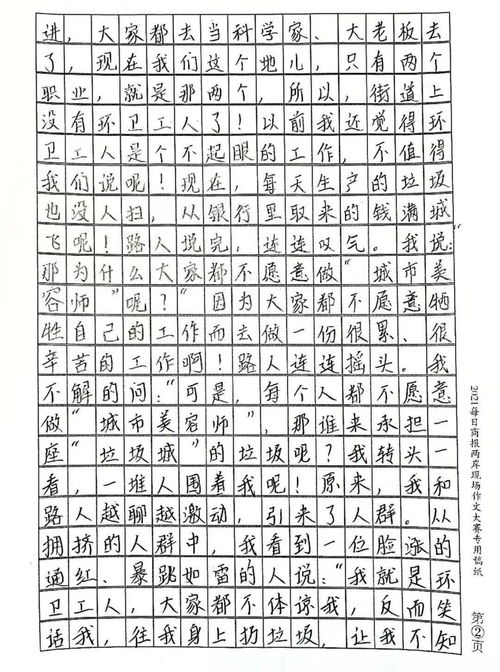 进，大家都去当科学家、大老板去
了，现在我们这个地儿，只有两个
职业，就是那两个，所以，街道上
没有环卫工人了！以前我还觉得环
卫工人是个不起眼的工作，不值得
我们说呢！现在，每天生产的垃圾
也没人扫，从银行里取来的钱满城
飞呢！路人说完，连连叹气。我说：“
那为什么大家都不愿意做“城市美
容师”呢？”因为大家都不愿意牺
牲自己的工作而去做一份很累、很
辛苦的工作啊！路人连连摇头。我
不解的问：“可是，每个人都不愿意
做“城市美容师”，那谁来承担一
座“垃圾城”的垃圾呢？我转头一
看，一堆人围着我呢！原来，我和
路人越聊越激动，引来了人群。从
拥挤的人群中，我看到一位脸涨的
通红、暴跳如雷的人说：“我就是环
卫工人，大家都不体谅我，反而笑
话我，往我身上扔垃圾，让我不知
2021每日商报两岸现场作文大赛专用稿纸
第②页